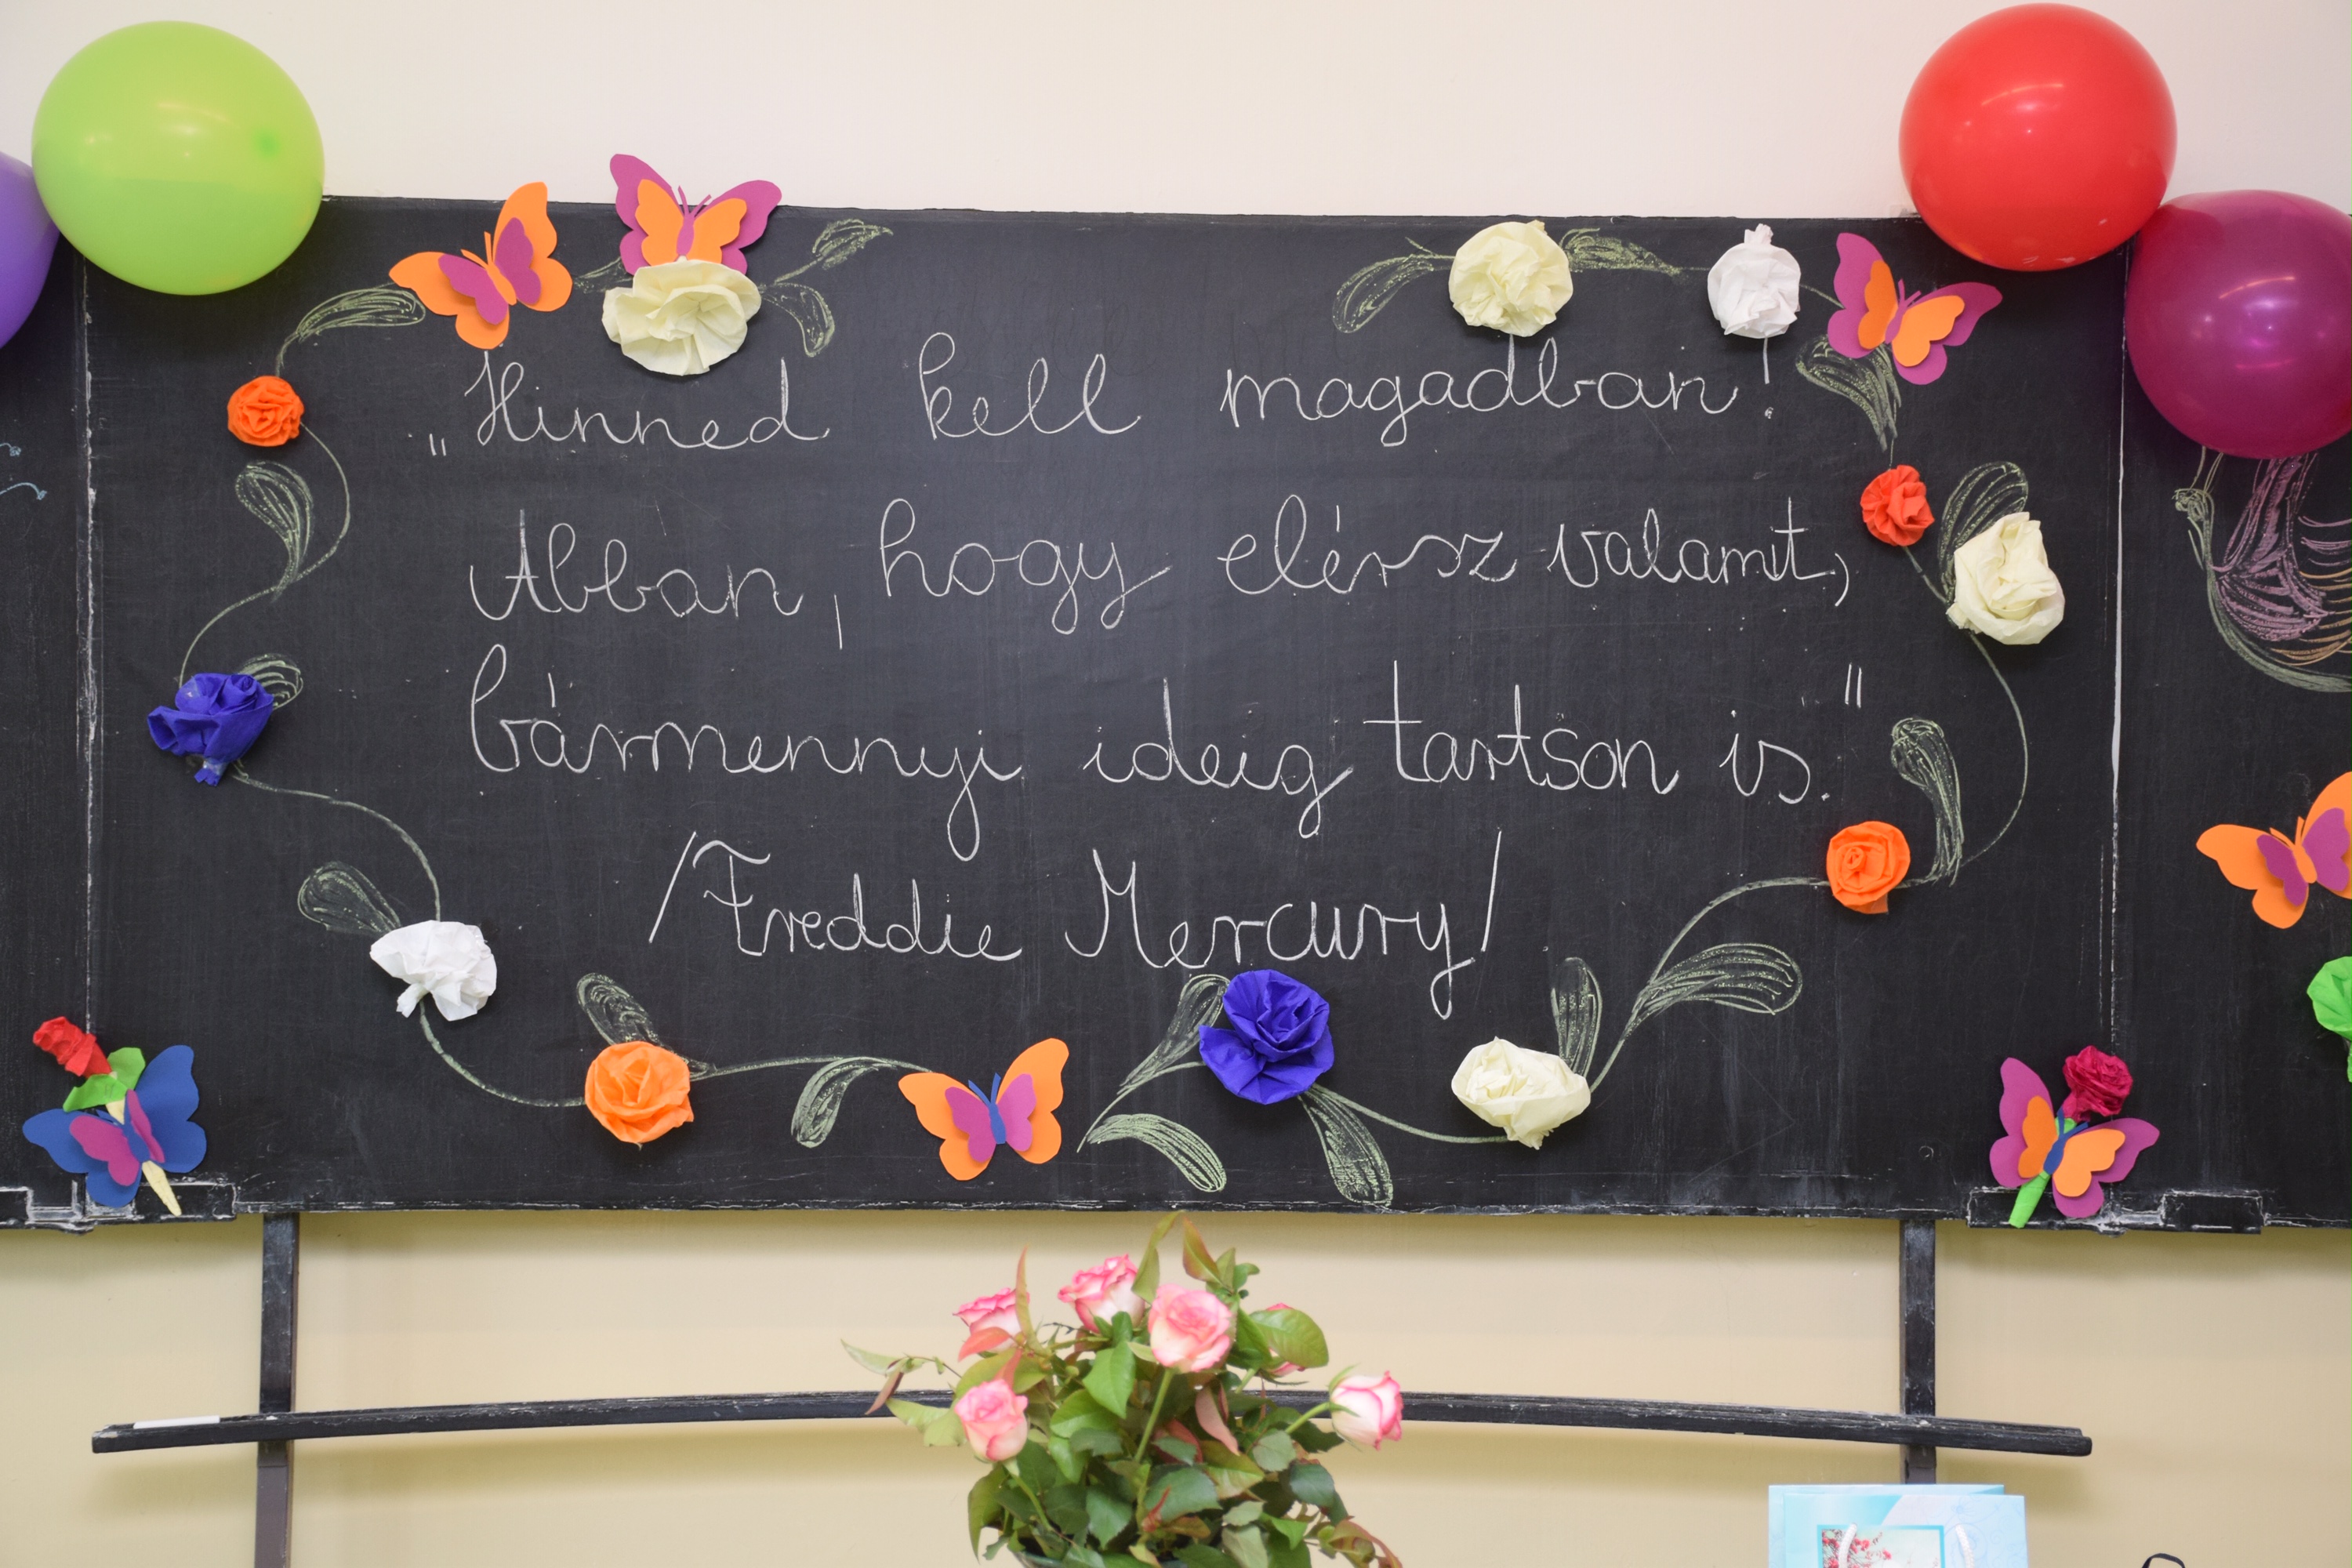 „Hinned kell magadban!
Abban, hogy elérsz valamit,
bármennyi ideig tartson is."
/Freddie Mercury/